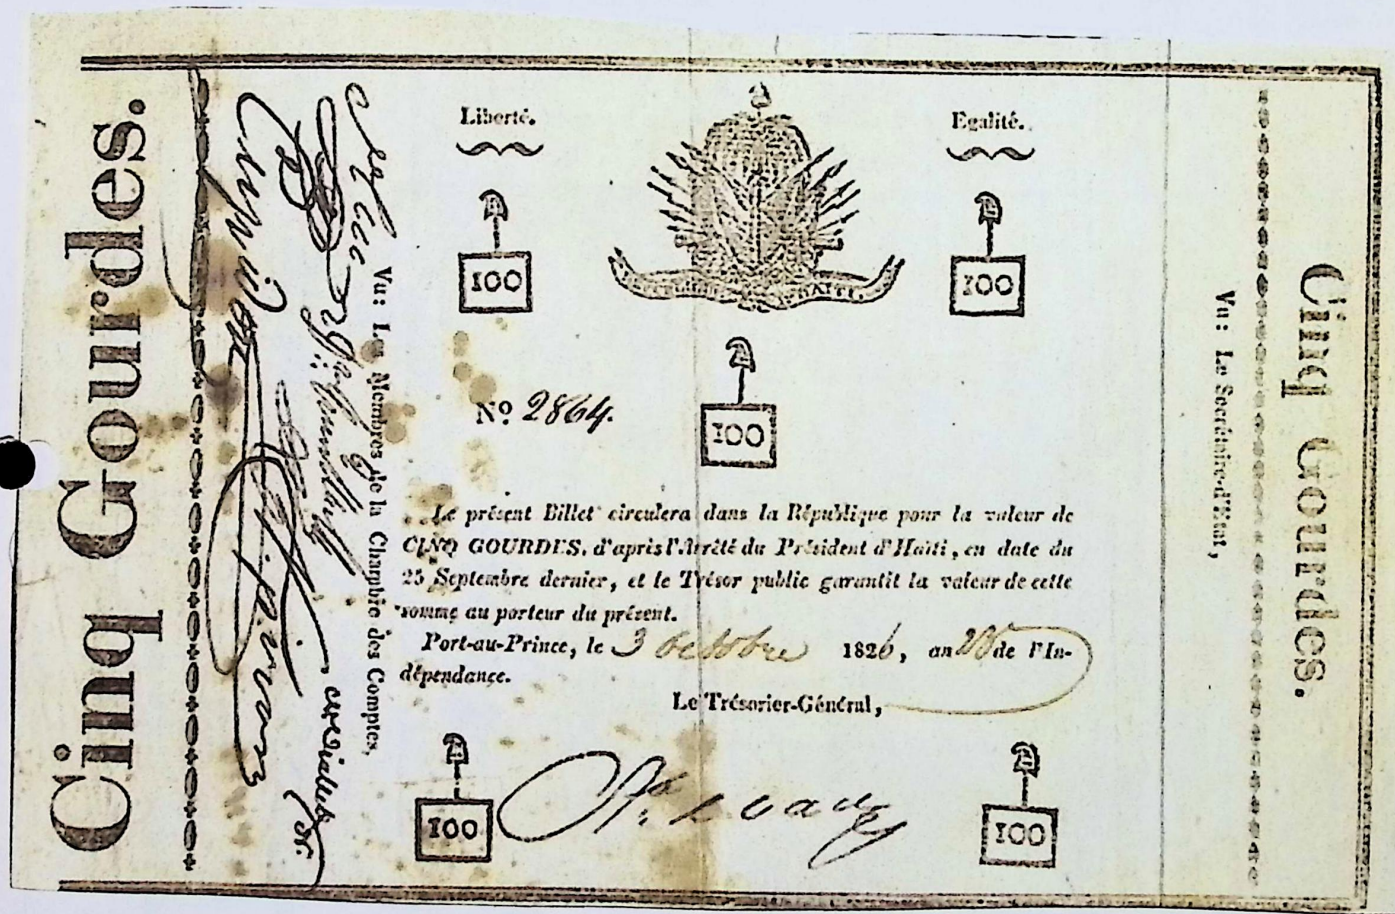 Cinq Gourdes.
Vu: Les Membres de la Chambre des Comptes,
Liberté.
Egalité.
100
100
100
Nº 2864.
Le présent Billet circulera dans la République pour la valeur de
CINQ GOURDES, d'après l'Arrêté du Président d'Haïti, en date du
25 Septembre dernier, et le Trésor public garantit la valeur de cette
somme au porteur du présent.
Port-au-Prince, le 3 octobre 1826, an de l'In-
dépendance.
Le Trésorier-Général,
100
100
Vu: Le Secrétaire-d'Etat,
Cinq Gourdes.